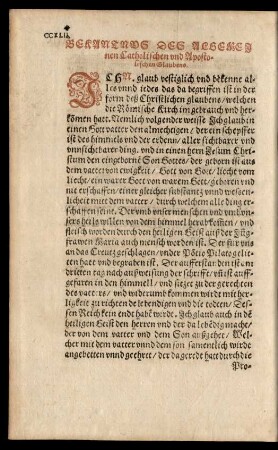 CCXLII.
BEKANTNVS DES ALGEMEI
nen Catholischen vnd Aposto-
lischen Glaubens.
ICH N. glaub vestiglich vnd bekenne al-
les vnnd iedes das da begriffen ist in der
form deß Christlichen glaubens, welchen
die Römische Kirch im gebrauch vnd her-
komen hatt. Nemlich volgender weisse Ich glaub in
einen Gott vatter den almechtigen, der ein schepffer
ist des himmels vnd der erden, aller sichtbarer vnd
vnnsichtbarer ding, vnd in einen hern Jesum Chri-
stum den eingeborne Son Gottes, der geborn ist aus
dem vatter von ewigkeit, Gott von Gott, liecht vom
liecht, ein warer Gott von warem Gott, geborn vnd
nit erschaffen, einer gleicher substantz vnnd wesen-
licheit mit dem vatter, durch welchem alle ding er-
schaffen seint. Der vmb vnser menschen vnd vmb vn-
sers heils willen von dem himmel herab komen, vnd
fleisch worden durch den heiligen Geist auß der Jüg-
frawen Maria auch mensch worden ist. Der für vns
an das Creutz geschlagen, vnder Pötio Pilato geli-
tten hatt vnd begraben ist. Der aufferstandē ist am
dritten tag nach außweisung der schrifft, vn̄ ist auff-
gefaren in den himmell, vnd sitzet zu der gerechten
des vatters, vnd widerumb kommen wird mit her-
ligkeit zu richten de lebendigen vnd die todten, Des-
sen Reich kein endt habē wirdt. Ich glaub auch in dē
heiligen Geist den herren vnd der da lebēdig mache,
der von dem vatter vnd dem Son außgehet, Wel-
cher mit dem vatter vnnd dem son samentlich wirdt
angebetten vnnd geehret, der da geredt hatt durch die
Pro-